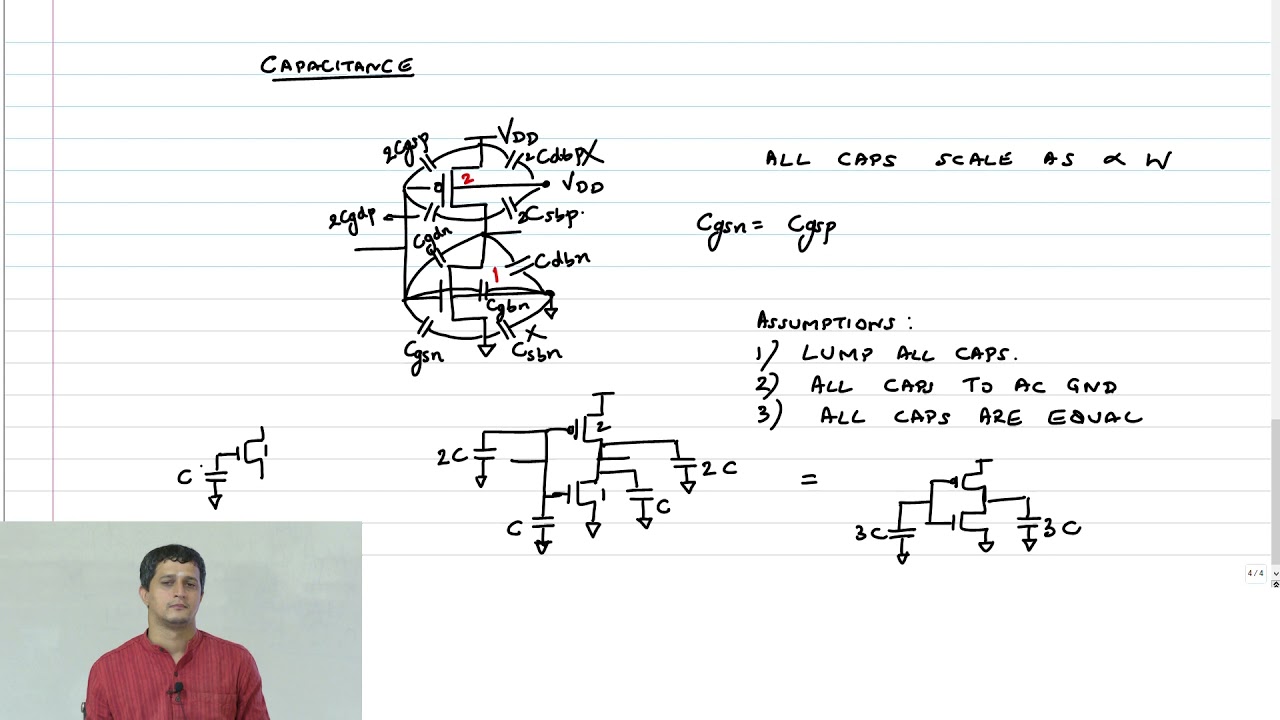 CAPACITANCE
VDD
2Cgsp
2Cdbp X
2
VDD
2Cgdp
2Csbp
Cgdn
Cdbn
1
Cgbn
Cgsn
X
Csbn
ALL CAPS SCALE AS ∝ W
Cgsn = Cgsp
ASSUMPTIONS:
1) LUMP ALL CAPS.
2) ALL CAPS TO AC GND
3) ALL CAPS ARE EQUAL
1
C
2
2C
2C
1
C
C
=
3C
3C
4/4